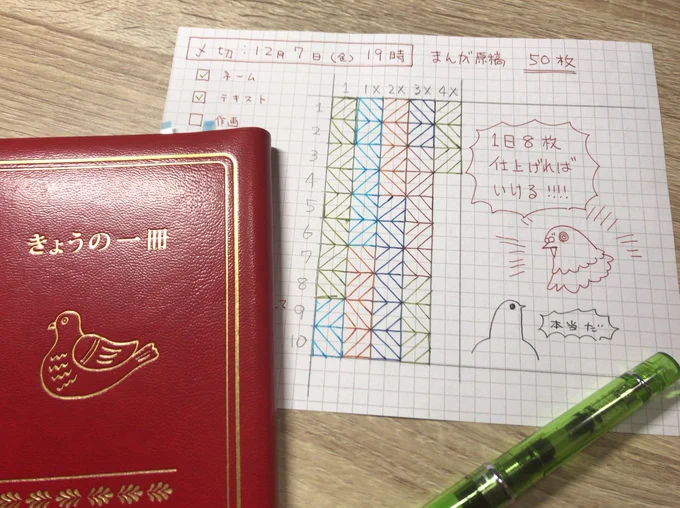 〆切:12月7日(金)19時
まんが原稿 50枚
ネーム
テキスト
作画
1 1X 2X 3X 4X
1
2
3
4
5
6
7
8
9
10
1日8枚
仕上げれば
いける!!!!
本当だ…
きょうの一冊